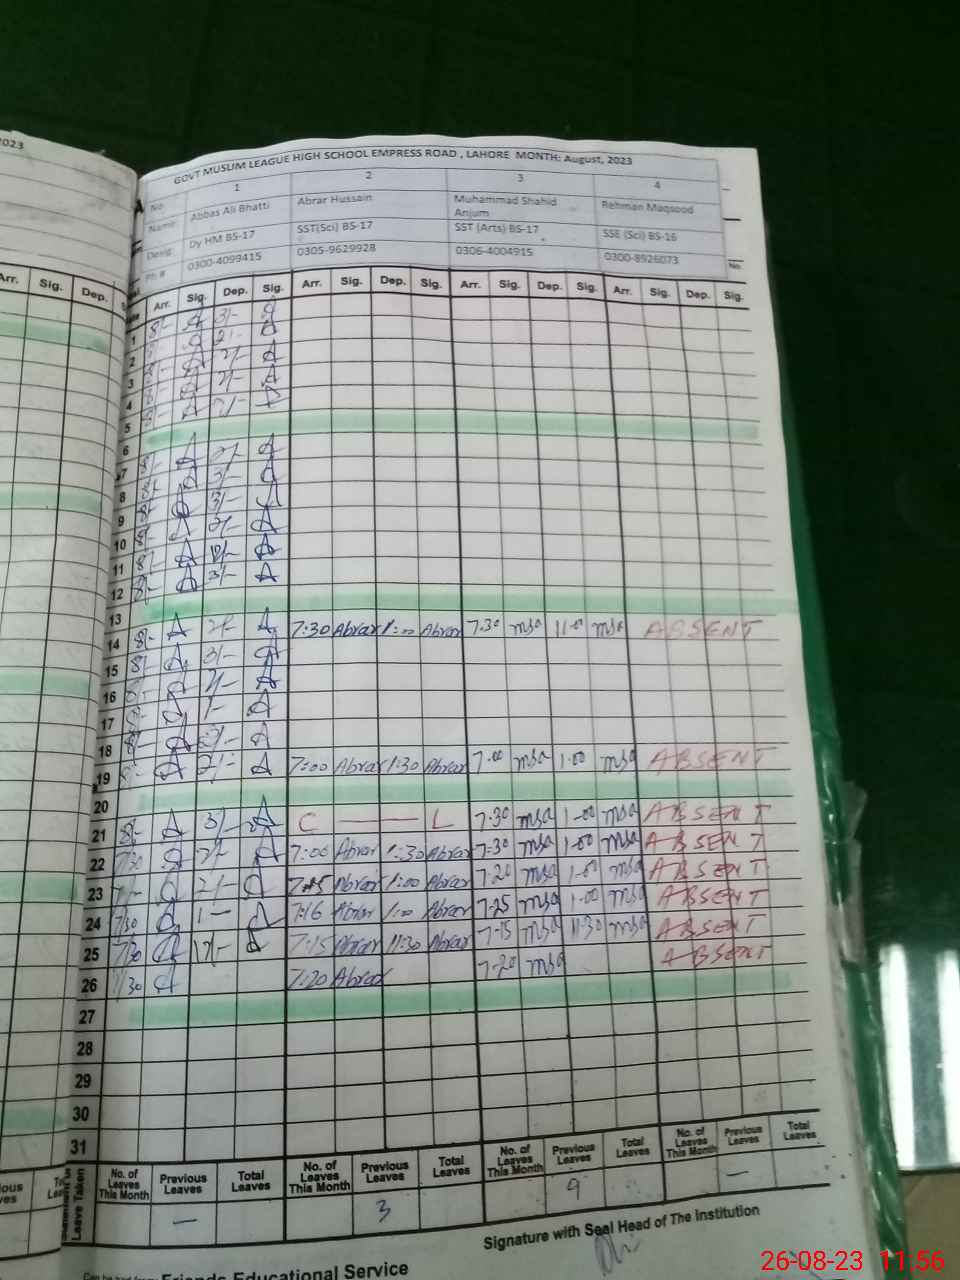 2023
GOVT MUSLIM LEAGUE HIGH SCHOOL EMPRESS ROAD , LAHORE MONTH: August, 2023
No. 1 2 3 4
Name Abbas Ali Bhatti Abrar Hussain Muhammad Shahid Anjum Rehman Maqsood
Desig. Dy HM BS-17 SST(Sci) BS-17 SST (Arts) BS-17 SSE (Sci) BS-16
Ph # 0300-4099415 0305-9629928 0306-4004915 0300-8926073
No.
Arr. Sig. Dep. Arr. Sig. Dep. Sig. Arr. Sig. Dep. Sig. Arr. Sig. Dep. Sig. Arr. Sig. Dep. Sig.
1 8/- A 3/-
2 A 2/- A
3 8/- A 2/- A
4 8/- A 2/- A
5 8/- A 2/-
6
7 8/- A 2/- A
8 8/- A 3/- A
9 8/- A 3/- A
10 8/- A 2/- A
11 8/- A A
12 8/- A 3/- A
13
14 8/- A 2/- A 7:30 Abrar 1:00 Abrar 7.30 msa 11.00 msa ABSENT
15 8/- A 3/- A
16 8/- A 2/- A
17 8/- A 1/- A
18 8/- A A
19 8/- A 2/- A 7:00 Abrar 1:30 Abrar 7.00 msa 1.00 msa ABSENT
20
21 8/- A 3/- A C L 7.30 msa 1.00 msa ABSENT
22 7/30 A 2/- A 7:00 Abrar 1:30 Abrar 7.30 msa 1.00 msa ABSENT
23 7/- A 2/- A Abrar 1:00 Abrar 7.20 msa 1.00 msa ABSENT
24 7/30 A 1- A 7:16 Abrar 1:00 Abrar 7.25 msa 1.00 msa ABSENT
25 7/30 A A 7:15 Abrar 11:30 Abrar 7.15 msa 11.30 msa ABSENT
26 7/30 A 7:20 Abrar 7.20 msa ABSENT
27
28
29
30
31
Leave Taken No. of Leaves This Month Previous Leaves Total Leaves No. of Leaves This Month Previous Leaves Total Leaves No. of Leaves This Month Previous Leaves Total Leaves No. of Leaves This Month Previous Leaves Total Leaves
— 3 9 —
Signature with Seal Head of The Institution
Friends Educational Service
26-08-23 11:56